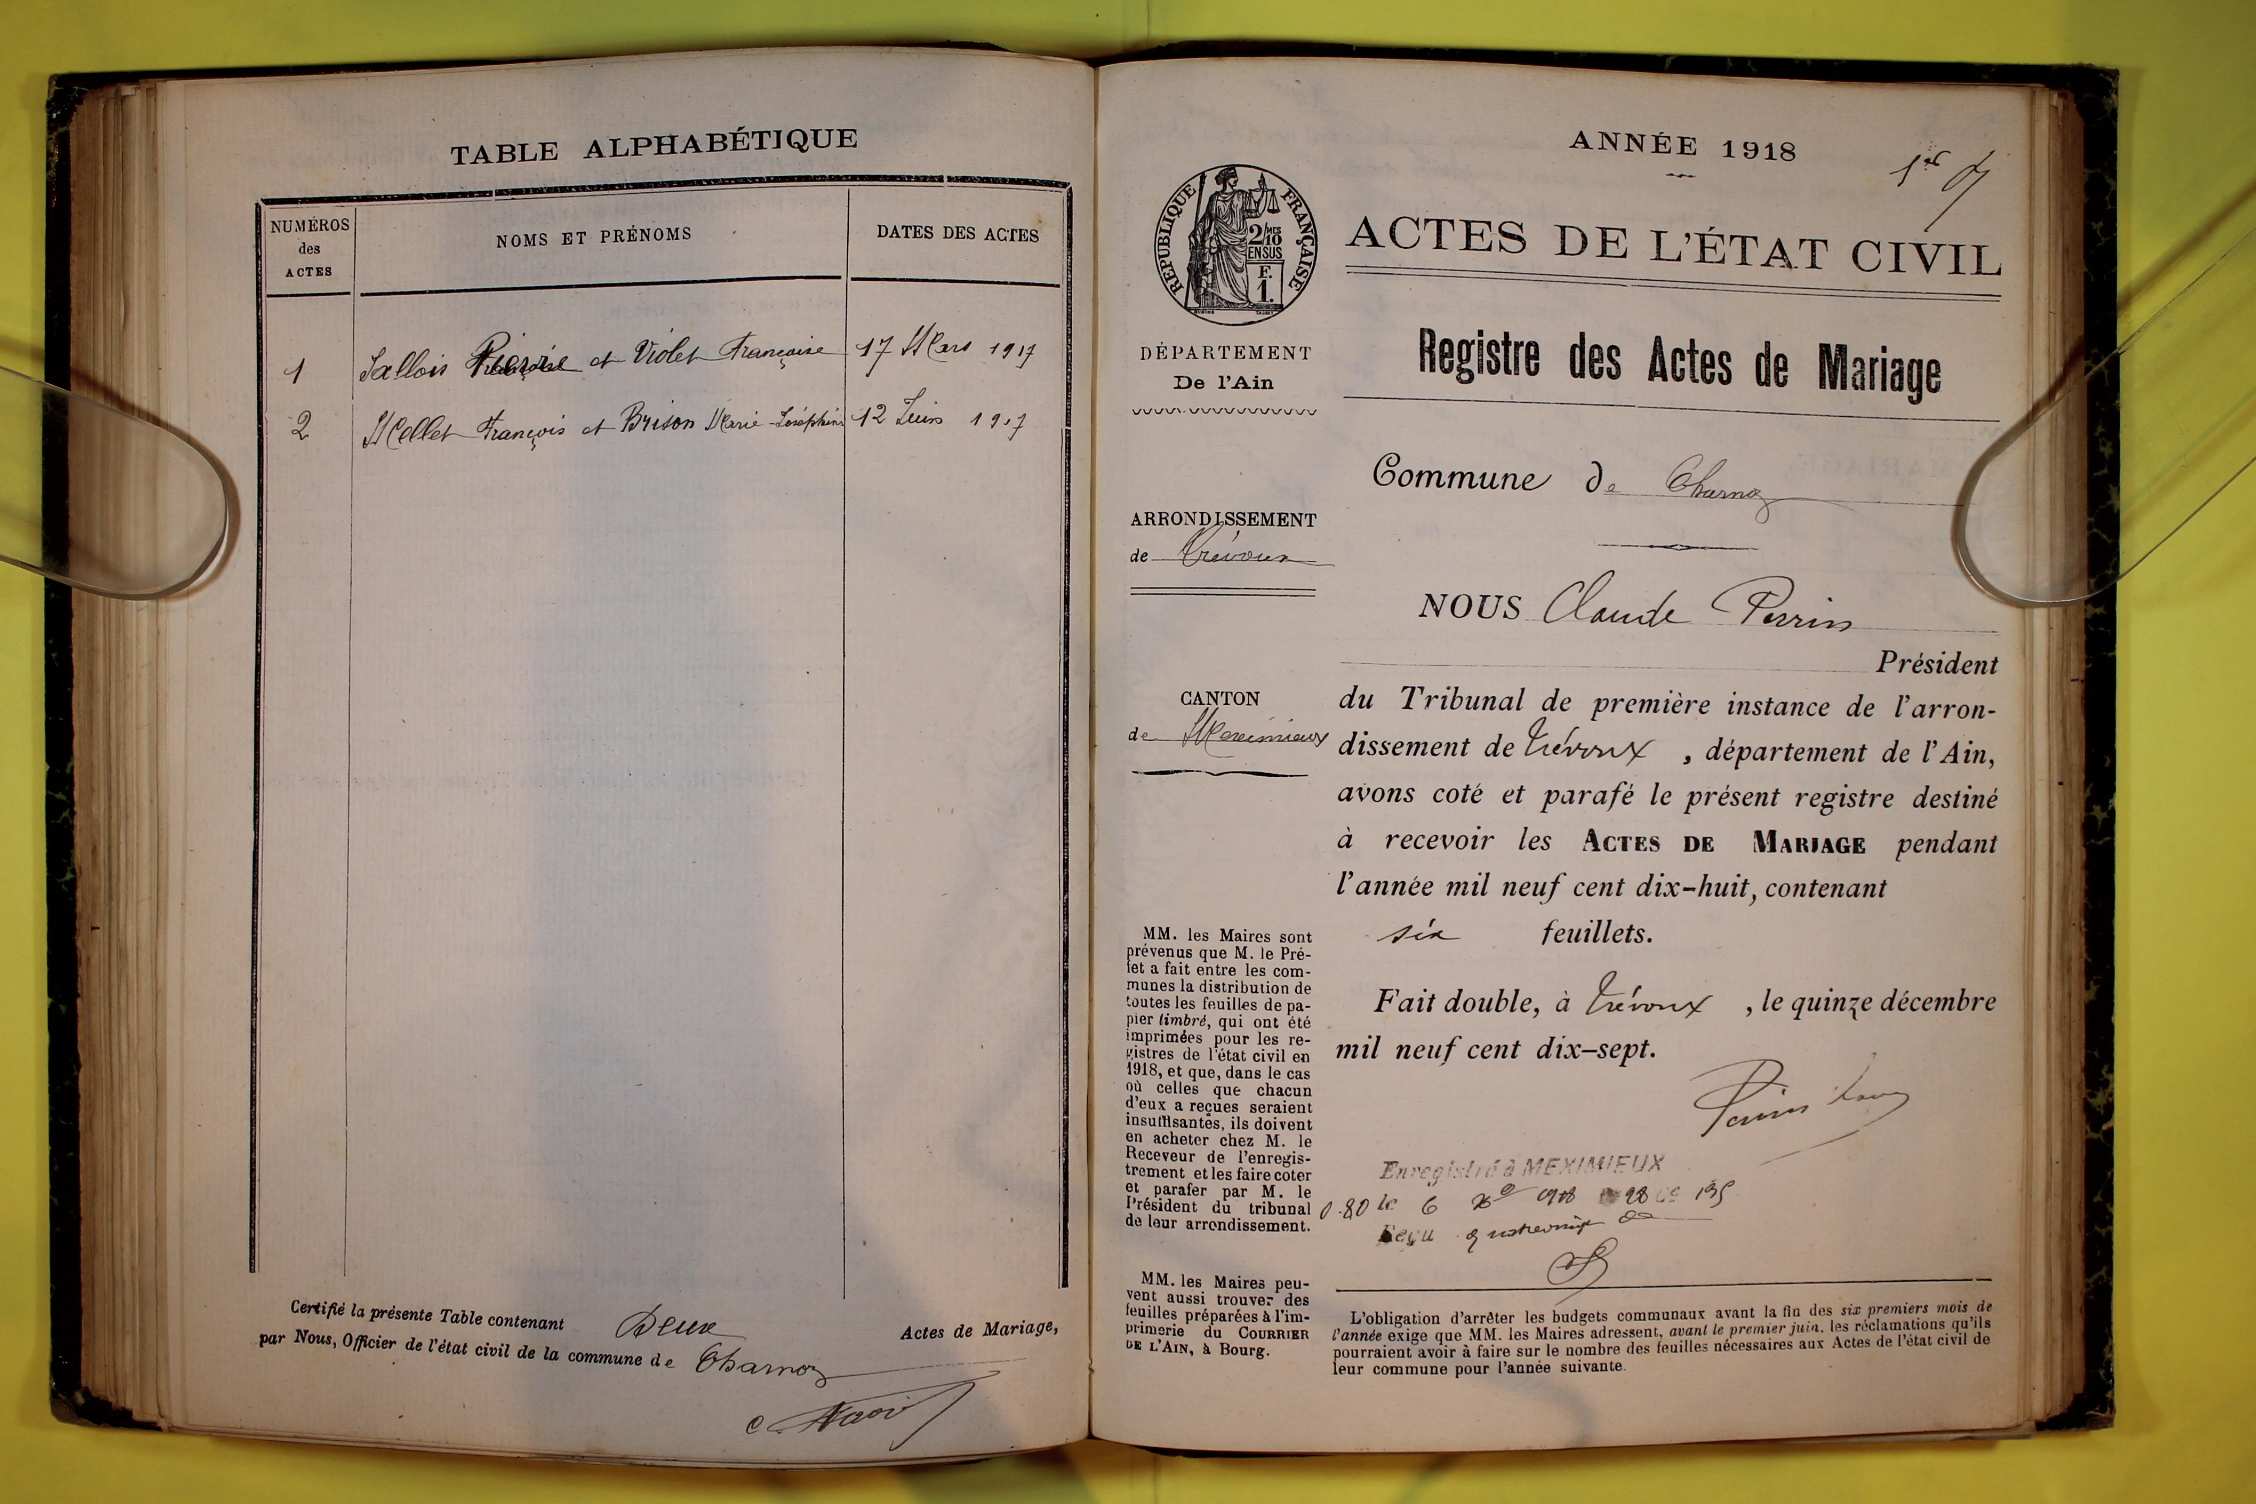 TABLE ALPHABÉTIQUE
NUMÉROS
des
ACTES
NOMS ET PRÉNOMS
DATES DES ACTES
1 Jallois Pierre et Violet Françoise 17 Mars 1917
2 Mellet François et Brison Marie-Joséphine 12 Juin 1917
Certifié la présente Table contenant Deux Actes de Mariage,
par Nous, Officier de l'état civil de la commune de Charnoz
ANNÉE 1918
RÉPUBLIQUE FRANÇAISE
2/10 MES
EN SUS
F.
1.
DÉPARTEMENT
De l'Ain
ARRONDISSEMENT
de Trévoux
CANTON
de Meximieux
MM. les Maires sont
prévenus que M. le Pré-
fet a fait entre les com-
munes la distribution de
toutes les feuilles de pa-
pier timbré, qui ont été
imprimées pour les re-
gistres de l'état civil en
1918, et que, dans le cas
où celles que chacun
d'eux a reçues seraient
insuffisantes, ils doivent
en acheter chez M. le
Receveur de l'enregis-
trement et les faire coter
et parafer par M. le
Président du tribunal
de leur arrondissement.
MM. les Maires peu-
vent aussi trouver des
feuilles préparées à l'im-
primerie du COURRIER
DE L'AIN, à Bourg.
ACTES DE L'ÉTAT CIVIL
Registre des Actes de Mariage
Commune de Charnoz
NOUS Claude Perrin
Président
du Tribunal de première instance de l'arron-
dissement de Trévoux, département de l'Ain,
avons coté et parafé le présent registre destiné
à recevoir les ACTES DE MARIAGE pendant
l'année mil neuf cent dix-huit, contenant
six feuillets.
Fait double, à Trévoux, le quinze décembre
mil neuf cent dix-sept.
Enregistré à MEXIMIEUX
0.80 le 6
Reçu
L'obligation d'arrêter les budgets communaux avant la fin des six premiers mois de
l'année exige que MM. les Maires adressent, avant le premier juin, les réclamations qu'ils
pourraient avoir à faire sur le nombre des feuilles nécessaires aux Actes de l'état civil de
leur commune pour l'année suivante.